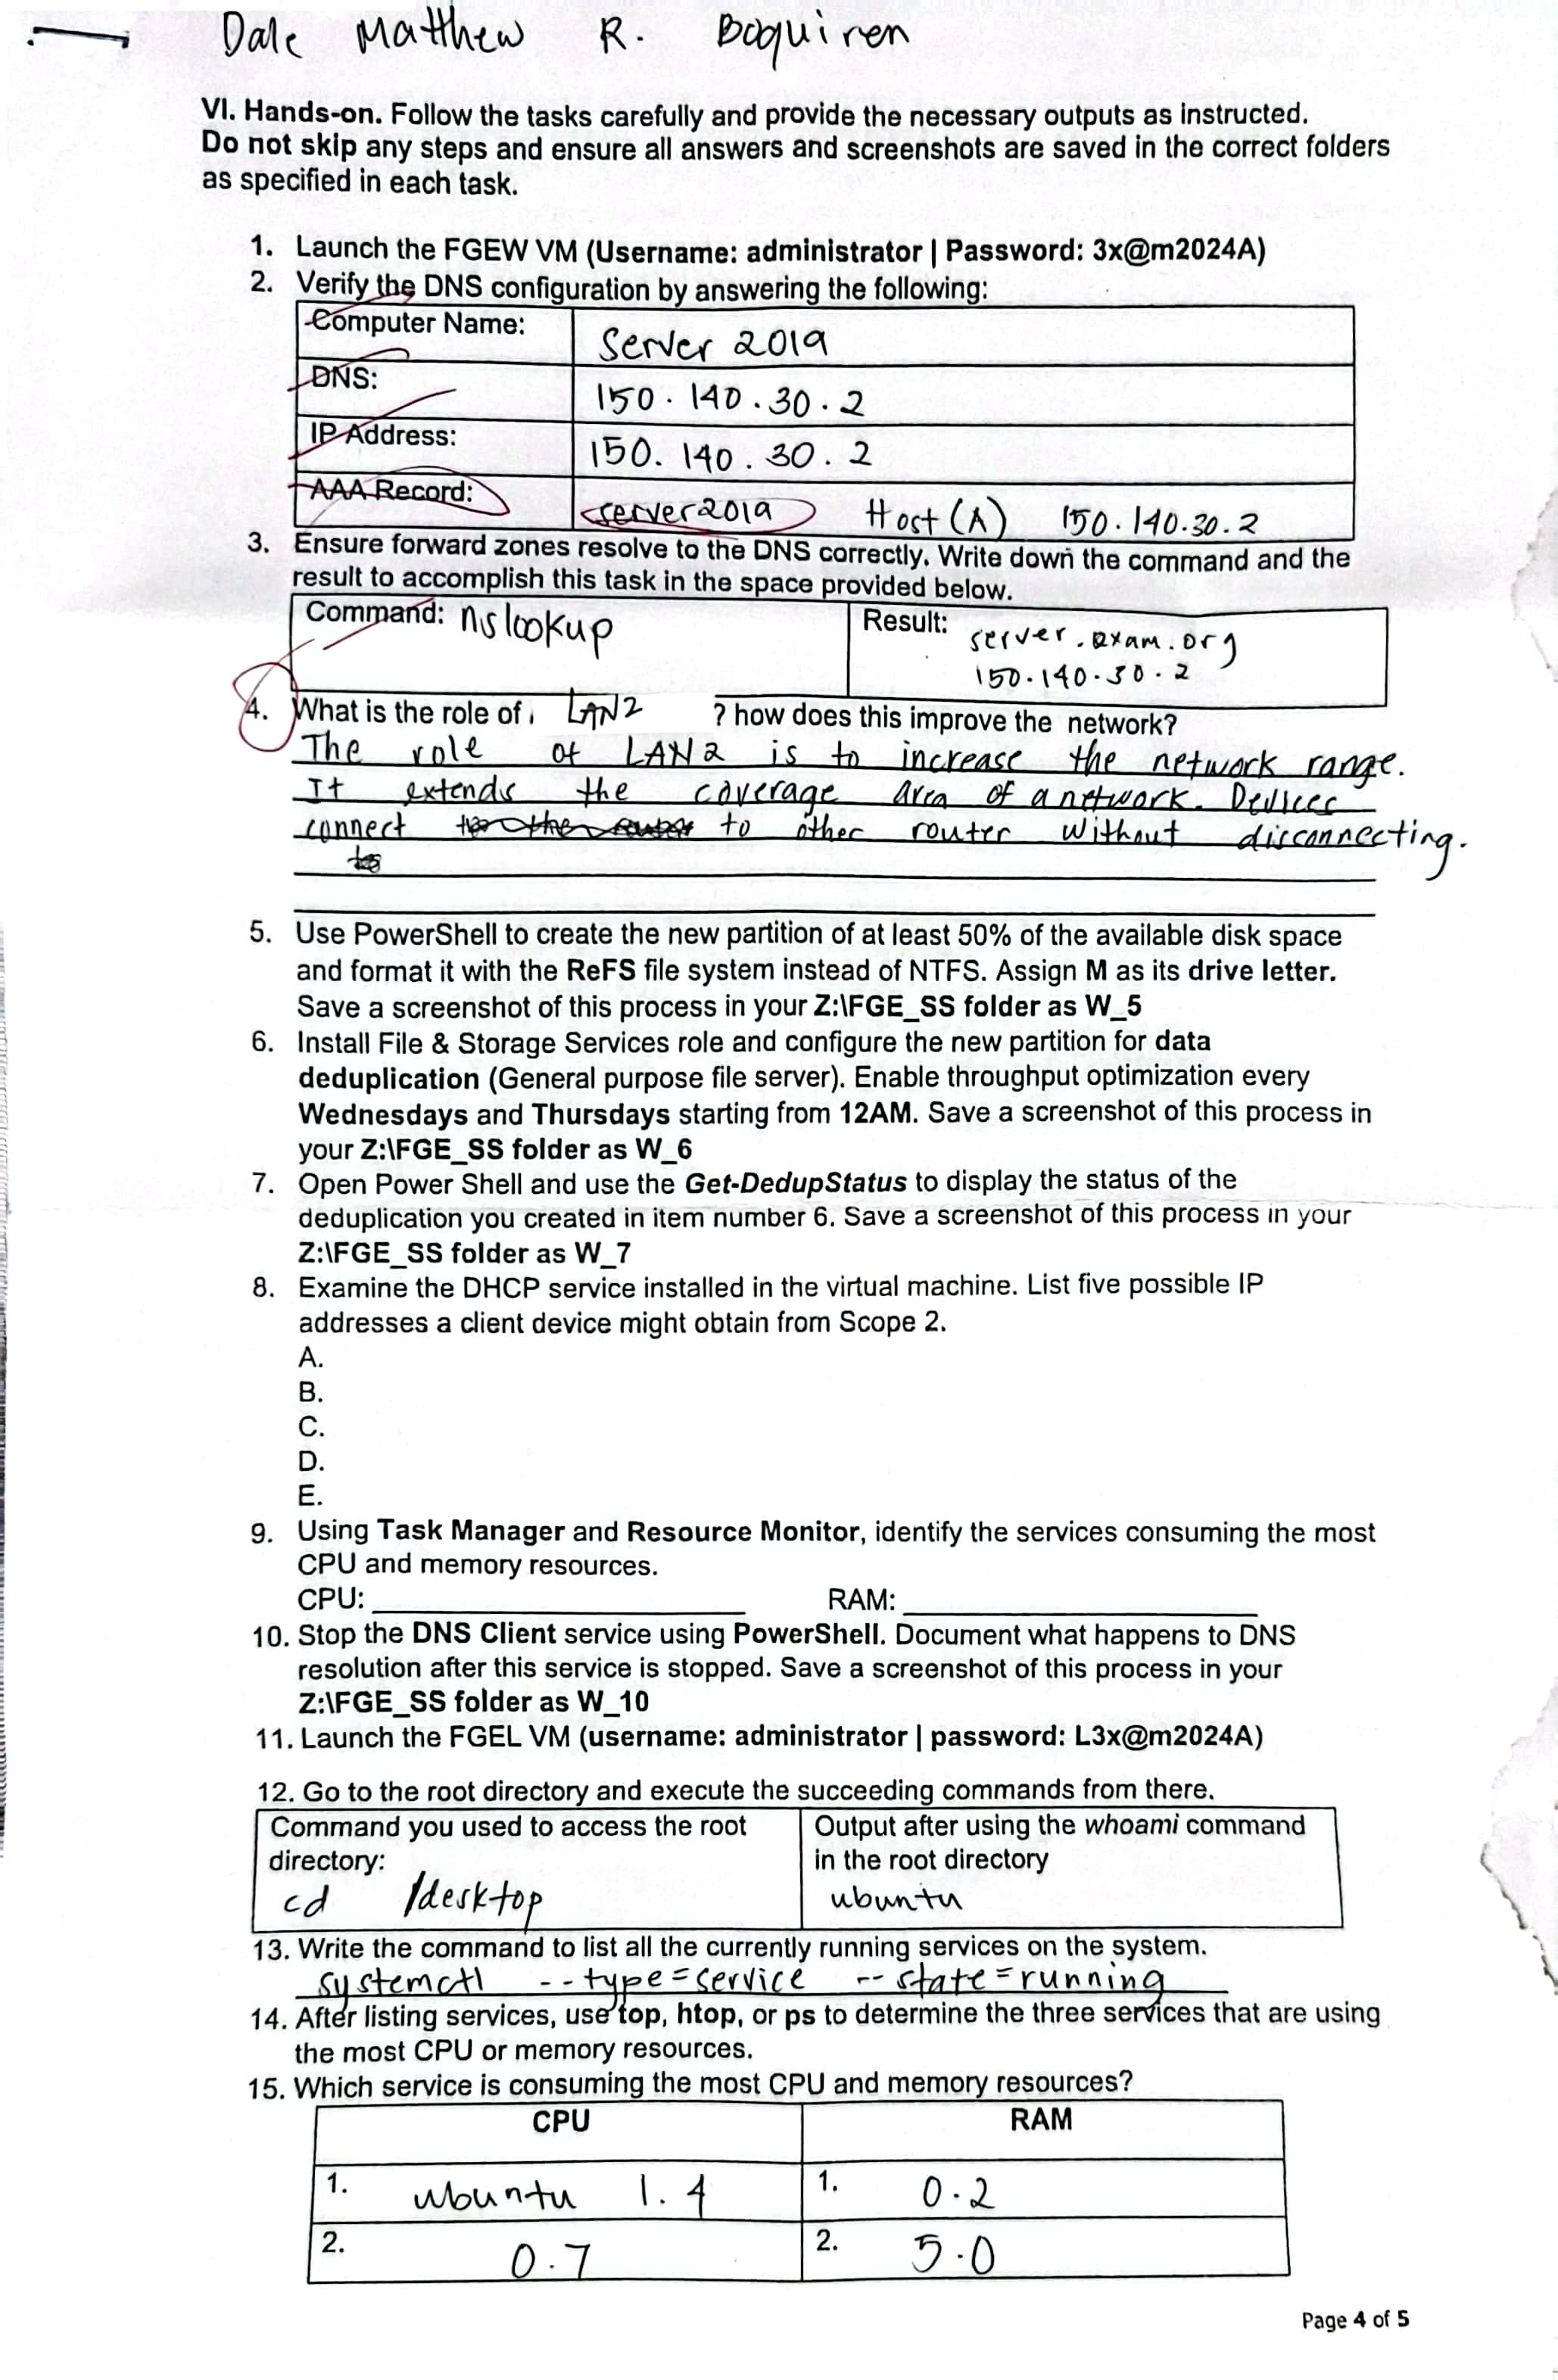 Dale Matthew R. Boquiren
VI. Hands-on. Follow the tasks carefully and provide the necessary outputs as instructed.
Do not skip any steps and ensure all answers and screenshots are saved in the correct folders
as specified in each task.
1. Launch the FGEW VM (Username: administrator | Password: 3x@m2024A)
2. Verify the DNS configuration by answering the following:
Computer Name: Server 2019
DNS: 150.140.30.2
IP Address: 150.140.30.2
AAA Record: server2019 Host (A) 150.140.30.2
3. Ensure forward zones resolve to the DNS correctly. Write down the command and the
result to accomplish this task in the space provided below.
Command: nslookup Result: server.exam.org
150.140.30.2
4. What is the role of LAN2 ? how does this improve the network?
The role of LAN2 is to increase the network range.
It extends the coverage area of a network. Devices
connect to other router without disconnecting.
5. Use PowerShell to create the new partition of at least 50% of the available disk space
and format it with the ReFS file system instead of NTFS. Assign M as its drive letter.
Save a screenshot of this process in your Z:\FGE_SS folder as W_5
6. Install File & Storage Services role and configure the new partition for data
deduplication (General purpose file server). Enable throughput optimization every
Wednesdays and Thursdays starting from 12AM. Save a screenshot of this process in
your Z:\FGE_SS folder as W_6
7. Open Power Shell and use the Get-DedupStatus to display the status of the
deduplication you created in item number 6. Save a screenshot of this process in your
Z:\FGE_SS folder as W_7
8. Examine the DHCP service installed in the virtual machine. List five possible IP
addresses a client device might obtain from Scope 2.
A.
B.
C.
D.
E.
9. Using Task Manager and Resource Monitor, identify the services consuming the most
CPU and memory resources.
CPU: RAM:
10. Stop the DNS Client service using PowerShell. Document what happens to DNS
resolution after this service is stopped. Save a screenshot of this process in your
Z:\FGE_SS folder as W_10
11. Launch the FGEL VM (username: administrator | password: L3x@m2024A)
12. Go to the root directory and execute the succeeding commands from there.
Command you used to access the root Output after using the whoami command
directory: in the root directory
cd /desktop ubuntu
13. Write the command to list all the currently running services on the system.
systemctl --type=service --state=running
14. After listing services, use top, htop, or ps to determine the three services that are using
the most CPU or memory resources.
15. Which service is consuming the most CPU and memory resources?
CPU RAM
1. ubuntu 1.4 1. 0.2
2. 0.7 2. 5.0
Page 4 of 5